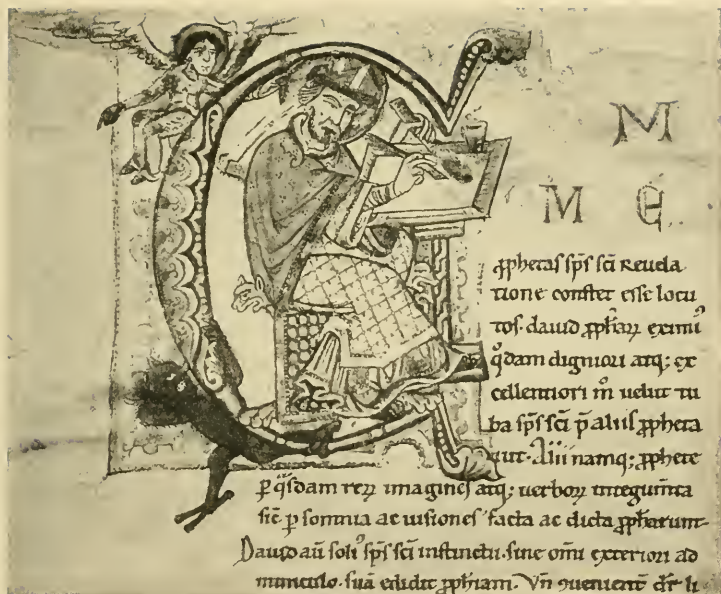 C
M
M E
ꝓphetas sp̄s sc̄i Reuela
tione constet esse locu
tos. dauid ꝓphar̄ꝝ eximiꝰ
q̇dam digniori atq; ex
cellentiori m̊ uelut tu
ba sp̄s sc̄i p̄ aliis ꝓpheta
uit. Alii namq; ꝓphete
ꝑ q̇sdam reꝝ imagines atq; uerboꝝ integum̄ta
sic̄ ꝑ somnia ac uisiones facta ac dicta ꝓpharunt.
Dauid aū soliꝰ sp̄s sc̄i instinctu. sine om̄i exteriori ad
miniculo. suā edidit ꝓphiam. Vn̄ ꝯuenient̄ dr̄ li